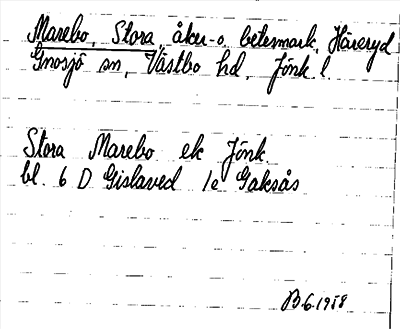 Marebo, Stora, åker- o. betesmark, Häreryd
Gnosjö sn, Västbo hd, Jönk l.
Stora Marebo ek Jönk.
bl. 6 D Gislaved 1e Gaksås
B.6.1958